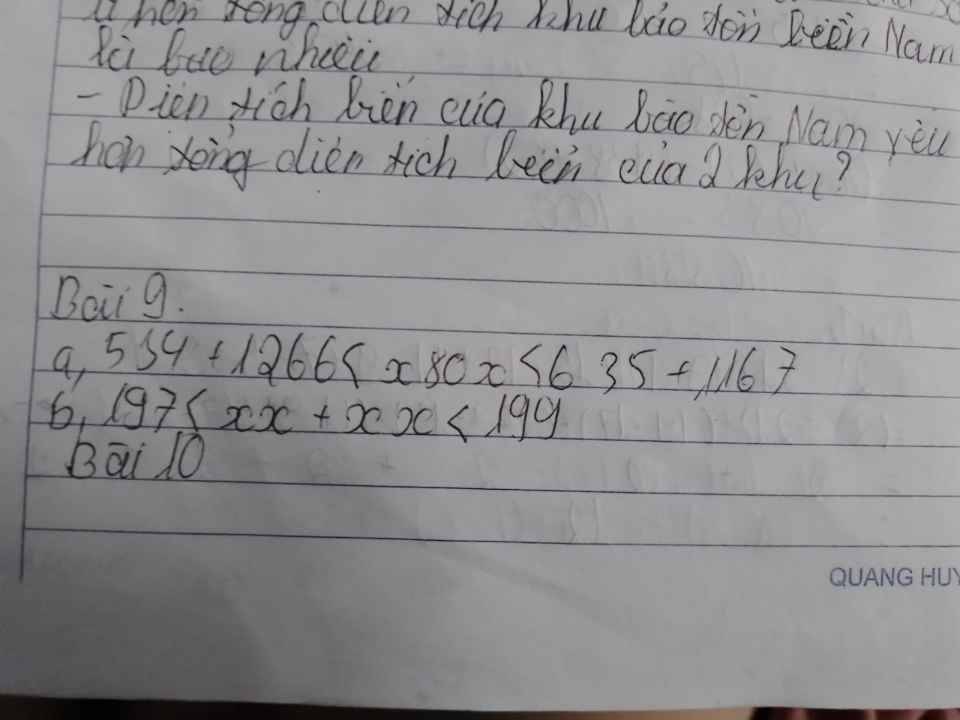 hơn tổng diện tích khu bảo tồn biển Nam
là bao nhiêu
- Diện tích biển của khu bảo tồn Nam yêu
hơn tổng diện tích biển của 2 khu?
Bài 9.
a, 534 + 1266 < x80x < 635 + 1167
b, 197 < xx + xx < 199
Bài 10
QUANG HUY